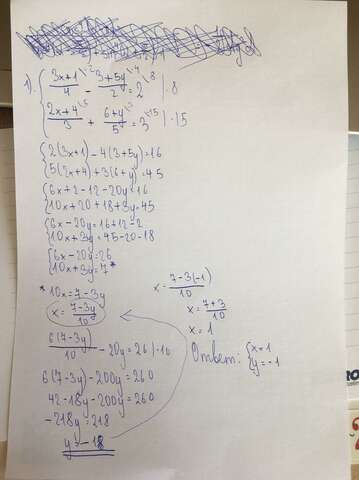 1). { (3x+1)/4 \2 - (3+5y)/2 \4 = 2 \8 | ·8
(2x+4)/3 \5 + (6+y)/5 \3 = 3 \15 | ·15
{ 2(3x+1) - 4(3+5y) = 16
5(2x+4) + 3(6+y) = 45
{ 6x + 2 - 12 - 20y = 16
10x + 20 + 18 + 3y = 45
{ 6x - 20y = 16 + 12 - 2
10x + 3y = 45 - 20 - 18
{ 6x - 20y = 26
10x + 3y = 7 *
* 10x = 7 - 3y
x = (7 - 3y)/10
6(7 - 3y)/10 - 20y = 26 | ·10
6(7 - 3y) - 200y = 260
42 - 18y - 200y = 260
-218y = 218
y = -1
x = (7 - 3(-1))/10
x = (7 + 3)/10
x = 1
Ответ: { x = 1
y = -1